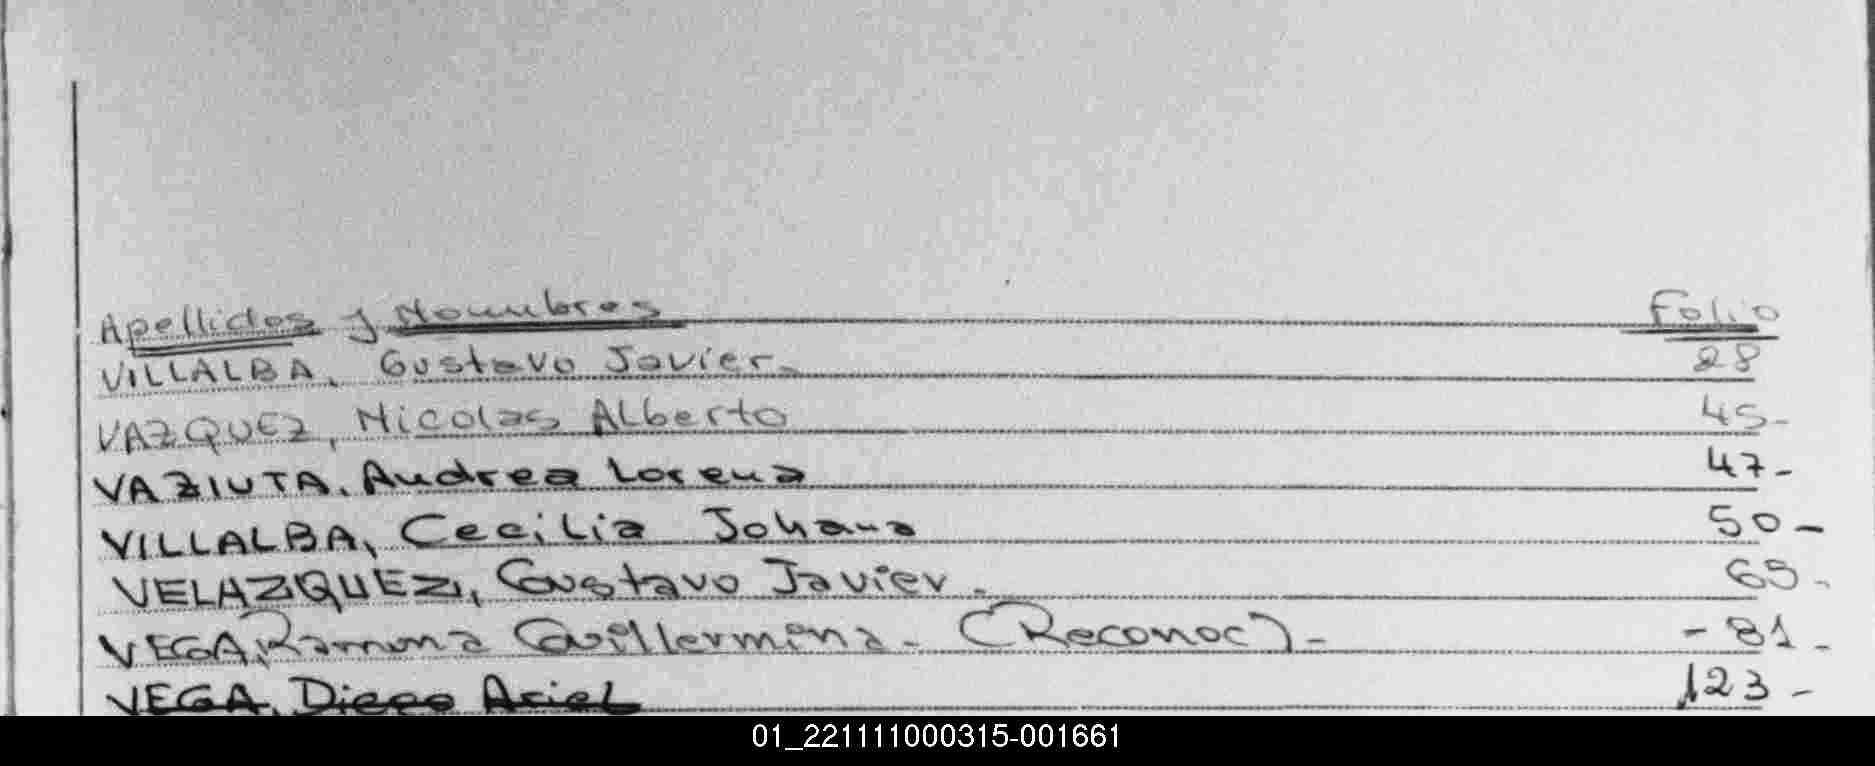 Apellidos y Nombres Folio
VILLALBA, Gustavo Javier. 28
VAZQUEZ, Nicolas Alberto 45-
VAZIUTA, Andrea Lorena 47-
VILLALBA, Cecilia Johana 50-
VELAZQUEZ, Gustavo Javier. 69-
VEGA, Ramona Guillermina - (Reconoc) - - 81 -
VEGA, Diego Ariel 123 -
01_221111000315-001661